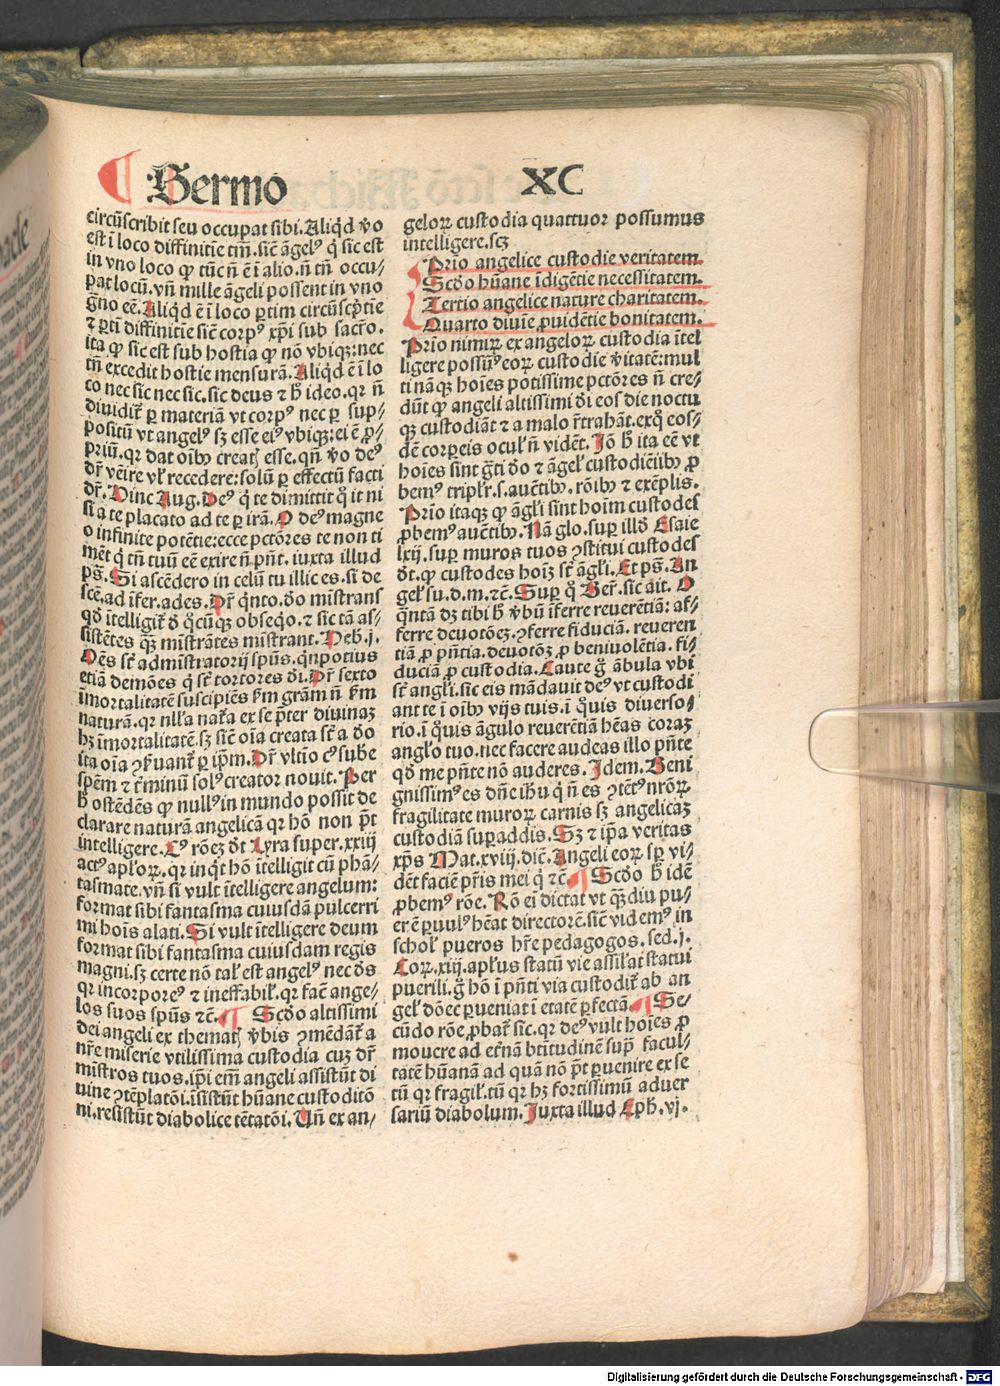 ¶ Sermo XC
circūscribit seu occupat sibi. Aliqd v̊o
est ī loco diffinitīe tm̄. sic̄ āgelꝰ q̇ sic est
in vno loco ꝙ tūc n̄ ē ī alio. n̄ tn̄ occu⸗
pat locū. vn̄ mille āgeli possent in vno
g̊no eē. Aliqd ē ī loco ꝑtim circūscp̄tīe
⁊ ꝑti diffinitīe sic̄ corpꝰ xp̄i sub sacr̄o.
ita ꝙ sic est sub hostia ꝙ nō vbiqꝫ: nec
tn̄ excedit hostie mensurā. Aliqd ē ī lo
co nec sic nec sic. sic deus ⁊ h̄ ideo. qr n̄
diuidit̄ ꝑ materiā vt corpꝰ nec ꝑ sup⸗
positū vt angelꝰ sꝫ esse eiꝰ vbiqꝫ: ei ē ꝓ⸗
priū. qr dat oībꝰ creatꝭ esse. qn̄ v̊o deꝰ
dr̄ veīre vl̄ recedere: solū ꝑ effectū facti
dr̄. Hinc Aug. Deꝰ q̇ te dimittit q̊ it ni
si a te placato ad te ꝑ irā. O deꝰ magne
o infinite potētie: ecce pctōres te non ti
mēt q̇ tn̄ tuū eē exire n̄ pn̄t. iuxta illud
ps̄. Si ascēdero in celū tu illic es. si de
scē. ad īfer. ades. Pr̄ q̇nto. d̊o mīstrans
qd̊ ītelligit̄ d̊ q̊cūqꝫ obseq̇o. ⁊ sic tā as⸗
sistētes qꝫ mīstrātes mīstrant. Heb. j.
Oēs st̄ admīstratorij spūs. qnpotius
etiā demōes q̇ st̄ tortores d̊i. Pr̄ sexto
īmortalitatē suscipiēs ẜm grām n̄ ẜm
naturā. qr nll̄a nat̄a ex se p̄ter divinaꝫ
hꝫ īmortalitatē. sꝫ sic̄ oīa creata st̄ a d̊o
ita oīa ꝯẜuant̄ ꝑ ip̄m. Pr̄ vltīo cꝰ sube
spēm ⁊ t̄minū solꝰ creator nouit. Per
h̊ ostēdēs ꝙ nullꝰ in mundo possit de
clarare naturā angelicā qr hō non pt̄
intelligere. Cꝰ rōeꝫ dt̄ Lyra super. xxiij
actꝰ apl̄oꝝ. qr inq̇t hō ītelligit cū phā⸗
tasmate. vn̄ si vult ītelligere angelum:
format sibi fantasma cuiusdā pulcerri
mi hoīs alati. Si vult ītelligere deum
format sibi fantasma cuiusdam regis
magni. sꝫ certe nō tal̄ est angelꝰ nec dꝰs
qr incorporeꝰ ⁊ ineffabil̄. qr fac̄ ange⸗
los suos spūs ⁊c̄. ¶ Scd̊o altissimi
dei angeli ex thematꝭ v̄bis ꝯmēdāt̄ a
nr̄e miserie vtilissima custodia cuꝫ dr̄
mīstros tuos. ip̄i em̄ angeli assistūt di
uine ꝯtēplatōi. īsistūt hūane custoditō
ni. resistūt diabolice tētatōi. Vn̄ ex an⸗
geloꝝ custodia quattuor possumus
intelligere. scꝫ
Prīo angelice custodie veritatem.
Scd̊o hūane īdigētie necessitatem.
Tertio angelice nature charitatem.
Quarto diuīe ꝓuidētie bonitatem.
Prīo nimiꝝ ex angeloꝝ custodia ītel
ligere possūꝰ eoꝝ custodie v̄itatē: mul
ti nāqꝫ hoīes potissime pctōres n̄ cre⸗
dūt ꝙ angeli altissimi d̊i eos die noctu
qꝫ custodiāt ⁊ a malo r̄trahāt. ex q̊ eos⸗
dē corꝑeis ocul̄ n̄ vidēt. Iō h̊ ita eē vt
hoīes sint g̊ti d̊o ⁊ āgel̄ custodiētibꝰ ꝓ
bemꝰ tripl̄r. s. auc̄tibꝰ. rōibꝰ ⁊ exēplis.
Prīo itaqꝫ ꝙ āgl̄i sint hoīm custodes
ꝓbemꝰ auc̄tibꝰ. Nā glo. suꝑ illd̊ Esaie
lxij. suꝑ muros tuos ꝯstitui custodes
dt̄. ꝙ custodes hoīꝫ st̄ āgl̄i. Et ps̄. An
gel̄ su. d. m. ⁊c̄. Suꝑ q̊ Ber. sic ait. O
q̇ntā dꝫ tibi h̊ v̄bū īferre reuerētiā: af⸗
ferre deuotōeꝫ. ꝯferre fiduciā. reueren
tiā ꝓ pn̄tia. deuotōꝫ ꝓ beniuolētia. fi⸗
duciā ꝓ custodia. Caute g̊ ābula vbi
st̄ angli. sic eis mādauit deꝰ vt custodi
ant te ī oībꝰ vijs tuis. ī q̊uis diuerso⸗
rio. ī q̊uis āgulo reuerētiā hēas. coraꝫ
angl̄o tuo. nec facere audeas illo pn̄te
qd̊ me pn̄te nō auderes. Idem. Beni
gnissimꝰ es dn̄e ih̄u q̇ n̄ es ꝯtētꝰ nr̄oꝝ
fragilitate muroꝝ carnis sꝫ angelicaꝫ
custodiā suꝑaddis. Sꝫ ⁊ ip̄a veritas
xp̄s Mat. xviij. dic̄. Angeli eoꝝ sp̄ vi⸗
dēt faciē pr̄is mei q̇ ⁊c̄. ¶ Scd̊o h̊ idē
ꝓbemꝰ rōe. Rō ei dictat vt qꝫdiu pu⸗
er ē ꝑuulꝰ hēat directorē. sic̄ videmꝰ in
schol̄ pueros hr̄e pedagogos. sed. j.
Cor. xiij. apl̄us statū vie assil̄at statui
puerili. g̊ hō ī pn̄ti via custodit̄ ab an
gel̄ dōec ꝑueniat ī etatē ꝑfectā. ¶ Se⸗
cūdo rōe ꝓbat̄ sic. qr deꝰ vult hoīes ꝓ
mouere ad et̄nā btītudinē sup̄ facul⸗
tatē hūanā ad quā nō pt̄ ꝑuenire ex se
tū qr fragil̄. tū qr hꝫ fortissimū aduer
sariū diabolum. Iuxta illud Eph. vj.
Digitalisierung gefördert durch die Deutsche Forschungsgemeinschaft - DFG